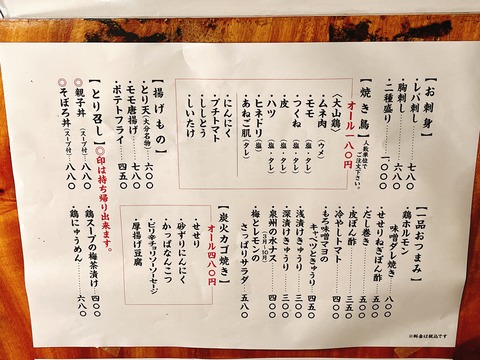 【お刺身】
・レバ刺し……七八〇
・胸刺し……六八〇
・二種盛り……一、〇〇〇
【焼き鳥】人数単位でご注文下さい。
オール一八〇円
〈大山鶏〉
・ムネ肉（ウメ）
・モモ（塩・タレ）
・つくね（塩・タレ）
・皮（塩・タレ）
・ハツ（塩・タレ）
・ヒネドリ（塩）
・あねご肌（タレ）
・にんにく
・プチトマト
・ししとう
・しいたけ
【揚げもの】
・とり天（大分名物）…六〇〇
・モモ唐揚げ……七八〇
・ポテトフライ……四五〇
【とり召し】◎印は持ち帰り出来ます。
◎親子丼（スープ付）……八八〇
◎そぼろ丼（スープ付）……八八〇
【一品おつまみ】
・鶏ホルモン
味噌ダレ焼き……八〇〇
・せせりねぎポン酢……五五〇
・だし巻き……五五〇
・皮ぽん酢……三五〇
・冷やしトマト……四五〇
・もろ味噌マヨの
キャベツときゅうり……四五〇
・浅漬けきゅうり……三〇〇
・深漬けきゅうり……三〇〇
・泉州の水ナス……五〇〇
・梅とレモンの
さっぱりサラダ……五八〇
【炭火カゴ焼き】
オール四八〇円
・せせり
・砂ずりにんにく
・かっぱなんこつ
・ピリ辛チョリソーソーセージ
・厚揚げ豆腐
・鶏スープの梅茶漬け…四〇〇
・鶏にゅうめん……六八〇
※料金は税込です